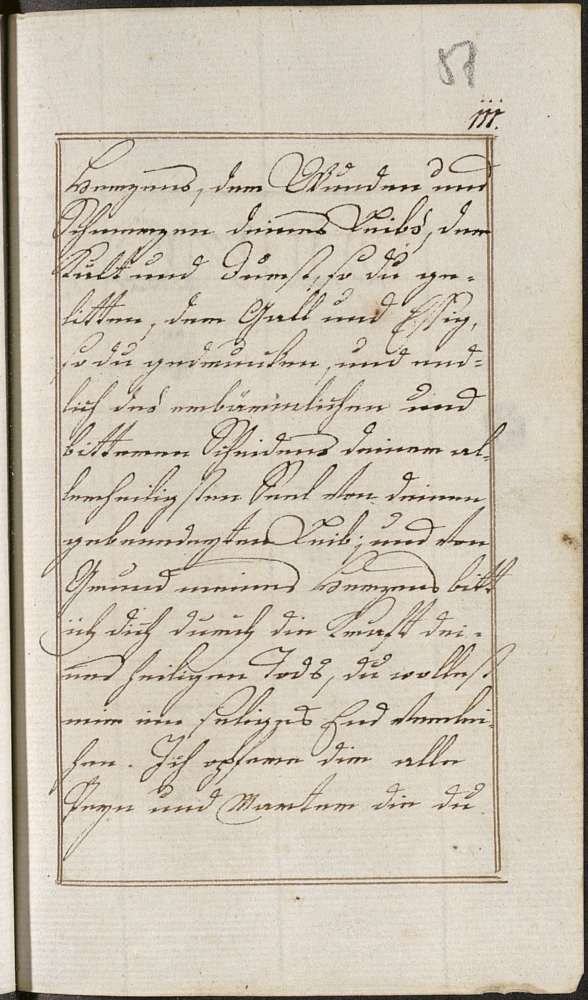 111.
Herzens, der Wunden und
Schmerzen deines Leibs, der
Kält und Durst, so du ge-
litten, der Gall und Essig,
so du getruncken, und end-
lich des erbärmlichen und
bitteren Scheidens deiner al-
lerheiligsten Seel von deinen
gebenedeyten Leib; und von
Grund meines Herzens bitt
ich dich durch die Krafft dei-
nes heiligen Tods, du wollest
mir ein seliges End verlei-
hen. Ich opfere dir alle
Peyn und Marter die du